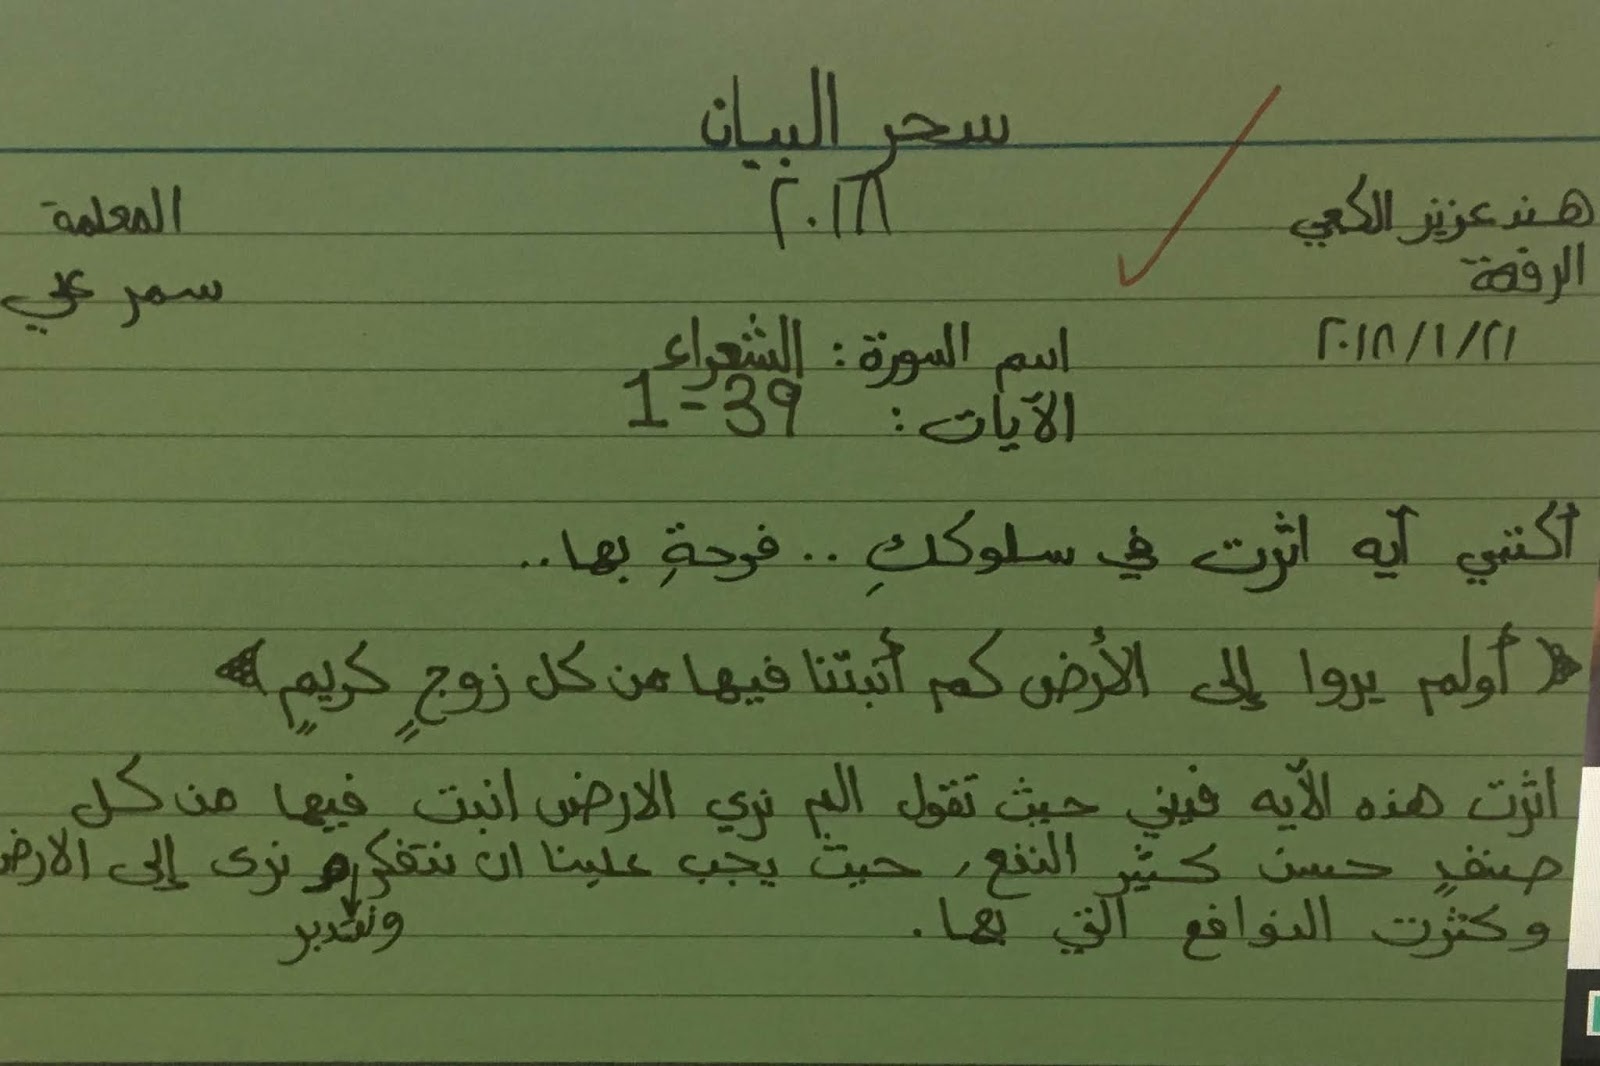 سحر البيان
٢٠١٨
هند عزيز الكعبي
المعلمة
الرفعة
سمر علي
٢٠١٨/١/٢١
اسم السورة : الشعراء
الآيات : 39 - 1
أكتبي آيه اثرت في سلوككِ .. فرحةِ بها ..
﴿ أولم يروا إلى الأرض كم أنبتنا فيها من كل زوجٍ كريمٍ ﴾
اثرت هذه الآيه فيني حيث تقول الم نري الارض انبت فيها من كل
صنفٍ حسن كثير النفع , حيث يجب علينا ان نتفكر نرى إلى الارض
ونتدبر
وكثرت النوافع التي بها .